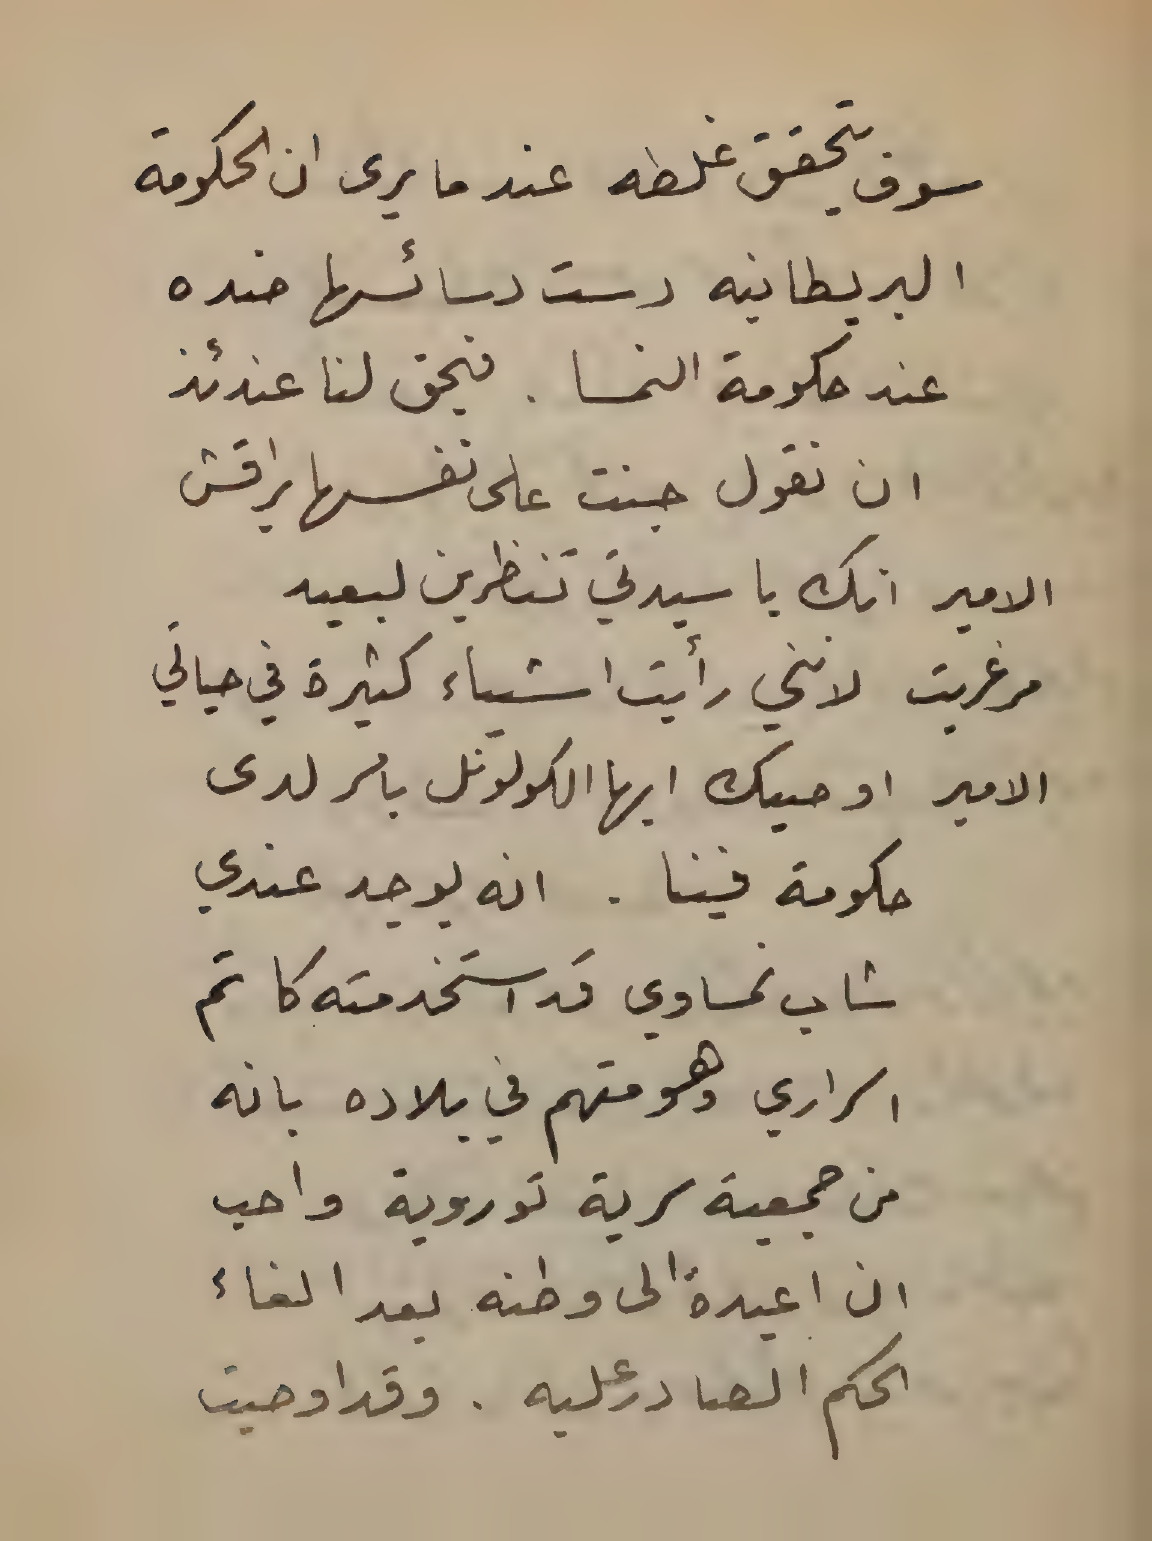 سوف يتحقق غلطه عند ما يرى ان الحكومة
البريطانيه دست دسائسها ضده
عند حكومة النمسا . فيحق لنا عندئذ
ان نقول جنت على نفسها براقش
الامير انك يا سيدتي تنظرين لبعيد
مرغريت لانني رأيت اشياء كثيرة في حياتي
الامير اوصيك ايها الكولونل بامر لدى
حكومة فينا . انه يوجد عندي
شاب نمساوي قد استخدمته كاتم
اسراري وهو متهم في بلاده بانه
من جمعية سرية ثوروية واحب
ان اعيدهُ الى وطنه بعد الغاء
الحكم الصادر عليه . وقد اوصيت